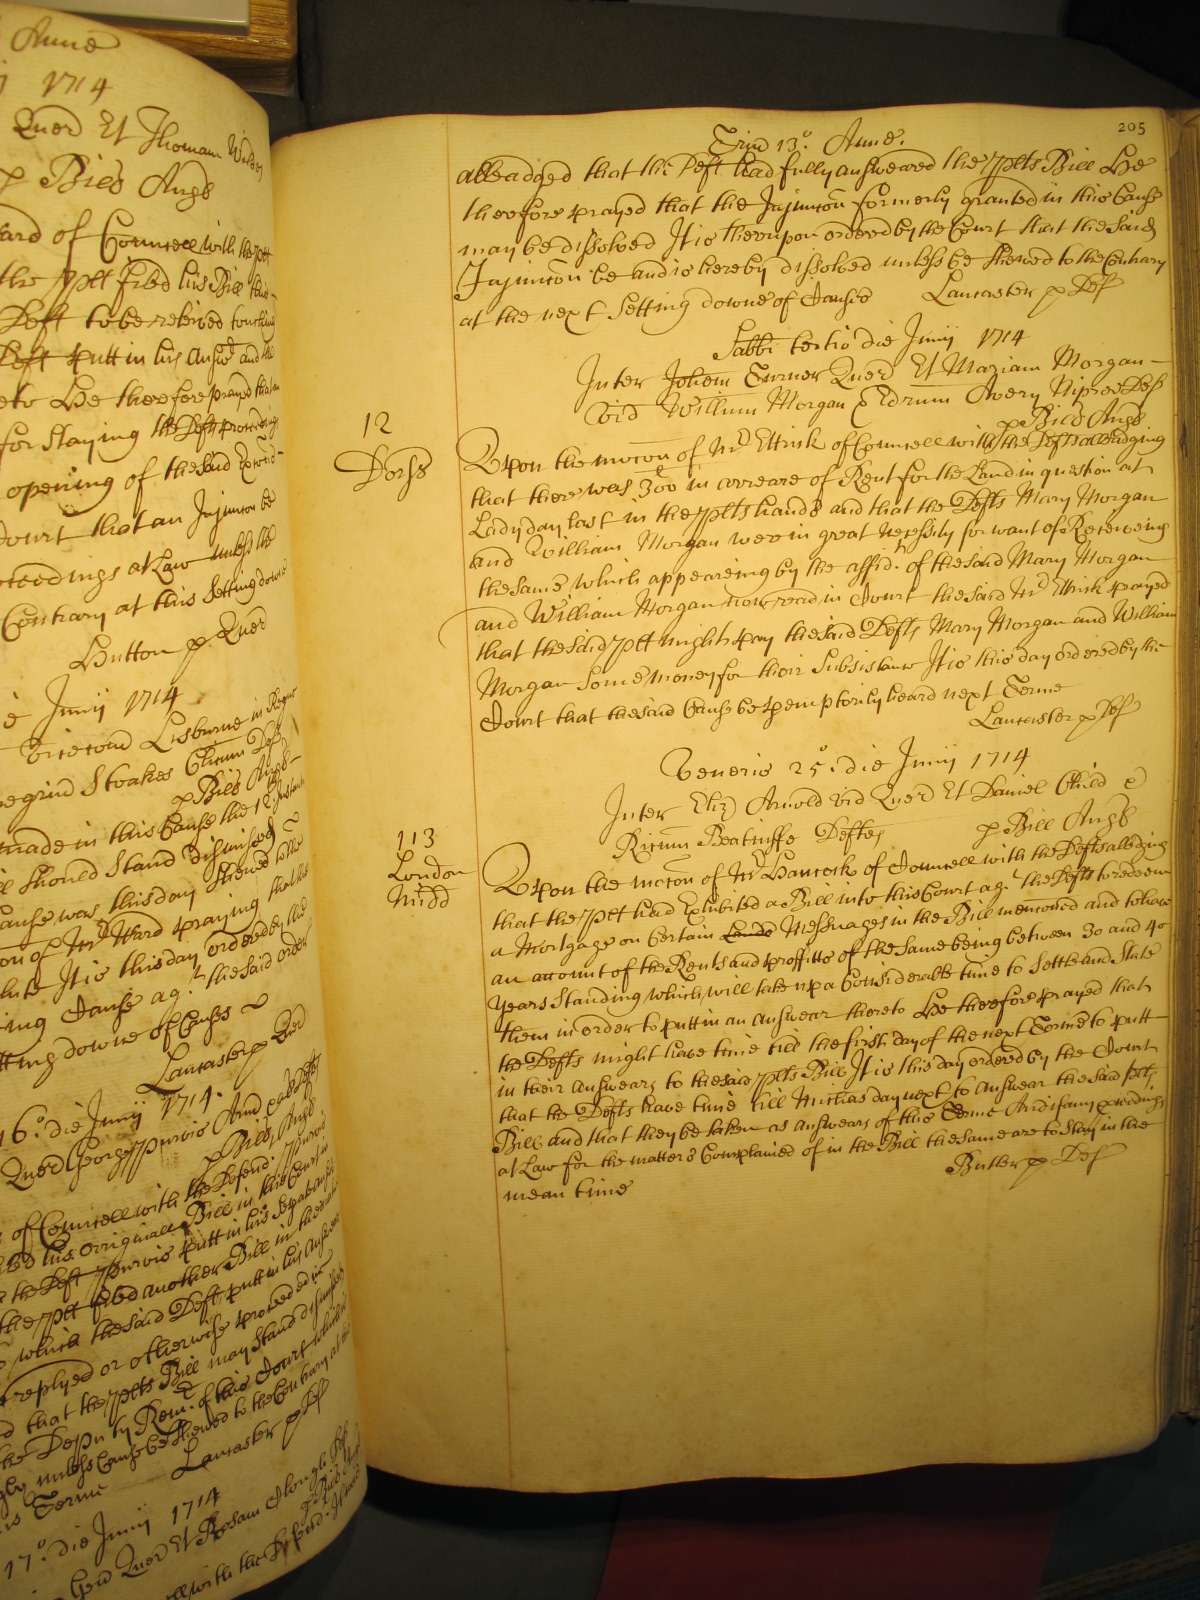 Anne
1714
Quer Et Thomam
p Bill Angl
ard of Councell with the pltt
the pltt filed his Bill
Deft to be releived touching
Deft putt in his Answr and
He therefore prayed that an
for staying the Defts proceedings
opening of the said
Court that an Injuncon be
proceedings at Law unless the
Contrary at this Setting downe
Hutton p Quer
Junij 1714
Vicecom Lisburne in Regno
Stoakes Deft
p Bill Angl
made in this Cause the 12th Instant
ll should Stand dismissed
ause was this day shewed to the
on of Mr Ward praying that the
lute It is this day ordered by the
ing Cause agt the said order
tting downe of Causes
Lancaster p Quer
16o die Junij 1714
Quer George Purvis Arm Deftes
p Bill Angl
of Councell with the Defend Purvis
his originall Bill in this Court
the Deft Purvis putt in his
the pltt filed another Bill in the
which the said Deft putt in his Answer
replyed or otherwise proceeded in
d that the plts Bill may Stand dismissed
the Deputy Remr of this Court
unless Cause be shewed to the Contrary at the
Terme Lancaster p Def
17o die Junij 1714
Quer Et Clough
with the Defend
205
Trin 13o Anne
alleadged that the Deft had fully answeared the pltts Bill He
therefore prayed that the Injuncon formerly granted in this Cause
may be dissolved It is thereupon ordered by the Court that the said
Injuncon be and is hereby dissolved unless be shewed to the Contrary
at the next Setting downe of Causes Lancaster p Def
Sabbi tertio die Junij 1714
Inter Johem Turner Quer Et Mariam Morgan
Vid Willum Morgan & Edrum Avery Nipree Def
p Bill Angl
12
Dorss
Upon the mocon of Mr Ettrick of Councell with the Defts alleadging
that there was 300l in arreare of Rent for the Land in question at
Ladyday last in the pltts hands and that the Defts Mary Morgan
and William Morgan were in great necessity for want of Receiveing
the same which appeareing by the affidt of the said Mary Morgan
and William Morgan now read in Court the said Mr Ettrick prayed
that the said pltt might pay the said Defts Mary Morgan and William
Morgan some money for their Subsistance It is this day ordered by the
Court that the said Cause be peremptorily heard next Terme
Lancaster p Def
Veneris 25o die Junij 1714
Inter Eliz Arnold vid Quer Et Daniel Child &
Ricum Beatniffe Deftes p Bill Angl
113
London
Midd
Upon the mocon of Mr Hancock of Councell with the Defts alledging
that the pltt had Exhibited a Bill into this Court agt the Defts to redeem
a Mortgage on Certain Lands Messuages in the Bill menconed and to have
an account of the Rents and proffitts of the same being between 30 and 40
years Standing which will take up a Considerable time to Settle and State
them in order to putt in an answear thereto He therefore prayed that
the Defts might have time till the first day of the next Terme to putt
in their answears to the said pltts Bill It is this day ordered by the Court
that the Defts have time till Michas day next to answear the said plts
Bill and that they be taken as answears of this Terme And if any proceedings
at Law for the matters Complained of in the Bill the same are to Stay in the
mean time Butler p Def